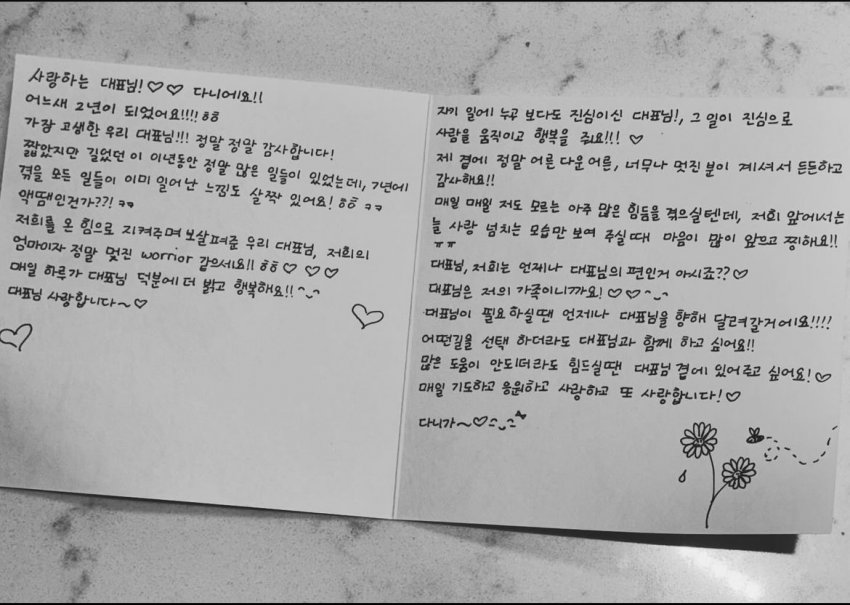 사랑하는 대표님!♡♡ 다니에요!!
어느새 2년이 되었어요!!!! ㅎㅎ
가장 고생한 우리 대표님!!! 정말 정말 감사합니다!
짧았지만 길었던 이 이년동안 정말 많은 일들이 있었는데, 7년에
겪을 모든 일들이 이미 일어난 느낌도 살짝 있어요! ㅎㅎ ㅋㅋ
액땜인건가??! ㅋㅋ
저희를 온 힘으로 지켜주며 보살펴준 우리 대표님, 저희의
엄마이자 정말 멋진 worrior 같으세요!! ㅎㅎ♡ ♡ ♡
매일 하루가 대표님 덕분에 더 밝고 행복해요!! ^_^
대표님 사랑합니다~♡
자기 일에 누구 보다도 진심이신 대표님!, 그 일이 진심으로
사람을 움직이고 행복을 줘요!!! ♡
제 곁에 정말 어른 다운 어른, 너무나 멋진 분이 계셔서 든든하고
감사해요!!
매일 매일 저도 모르는 아주 많은 힘듦을 겪으실텐데, 저희 앞에서는
늘 사랑 넘치는 모습만 보여 주실때 마음이 많이 아프고 찡해요!!
ㅠㅠ
대표님, 저희는 언제나 대표님의 편인거 아시죠??♡
대표님은 저의 가족이니까요! ♡♡ ^_^
대표님이 필요하실땐 언제나 대표님을 향해 달려갈거에요!!!!
어떤길을 선택 하더라도 대표님과 함께 하고 싶어요!!
많은 도움이 안되더라도 힘드실땐 대표님 곁에 있어주고 싶어요!♡
매일 기도하고 응원하고 사랑하고 또 사랑합니다!♡
다니가~♡